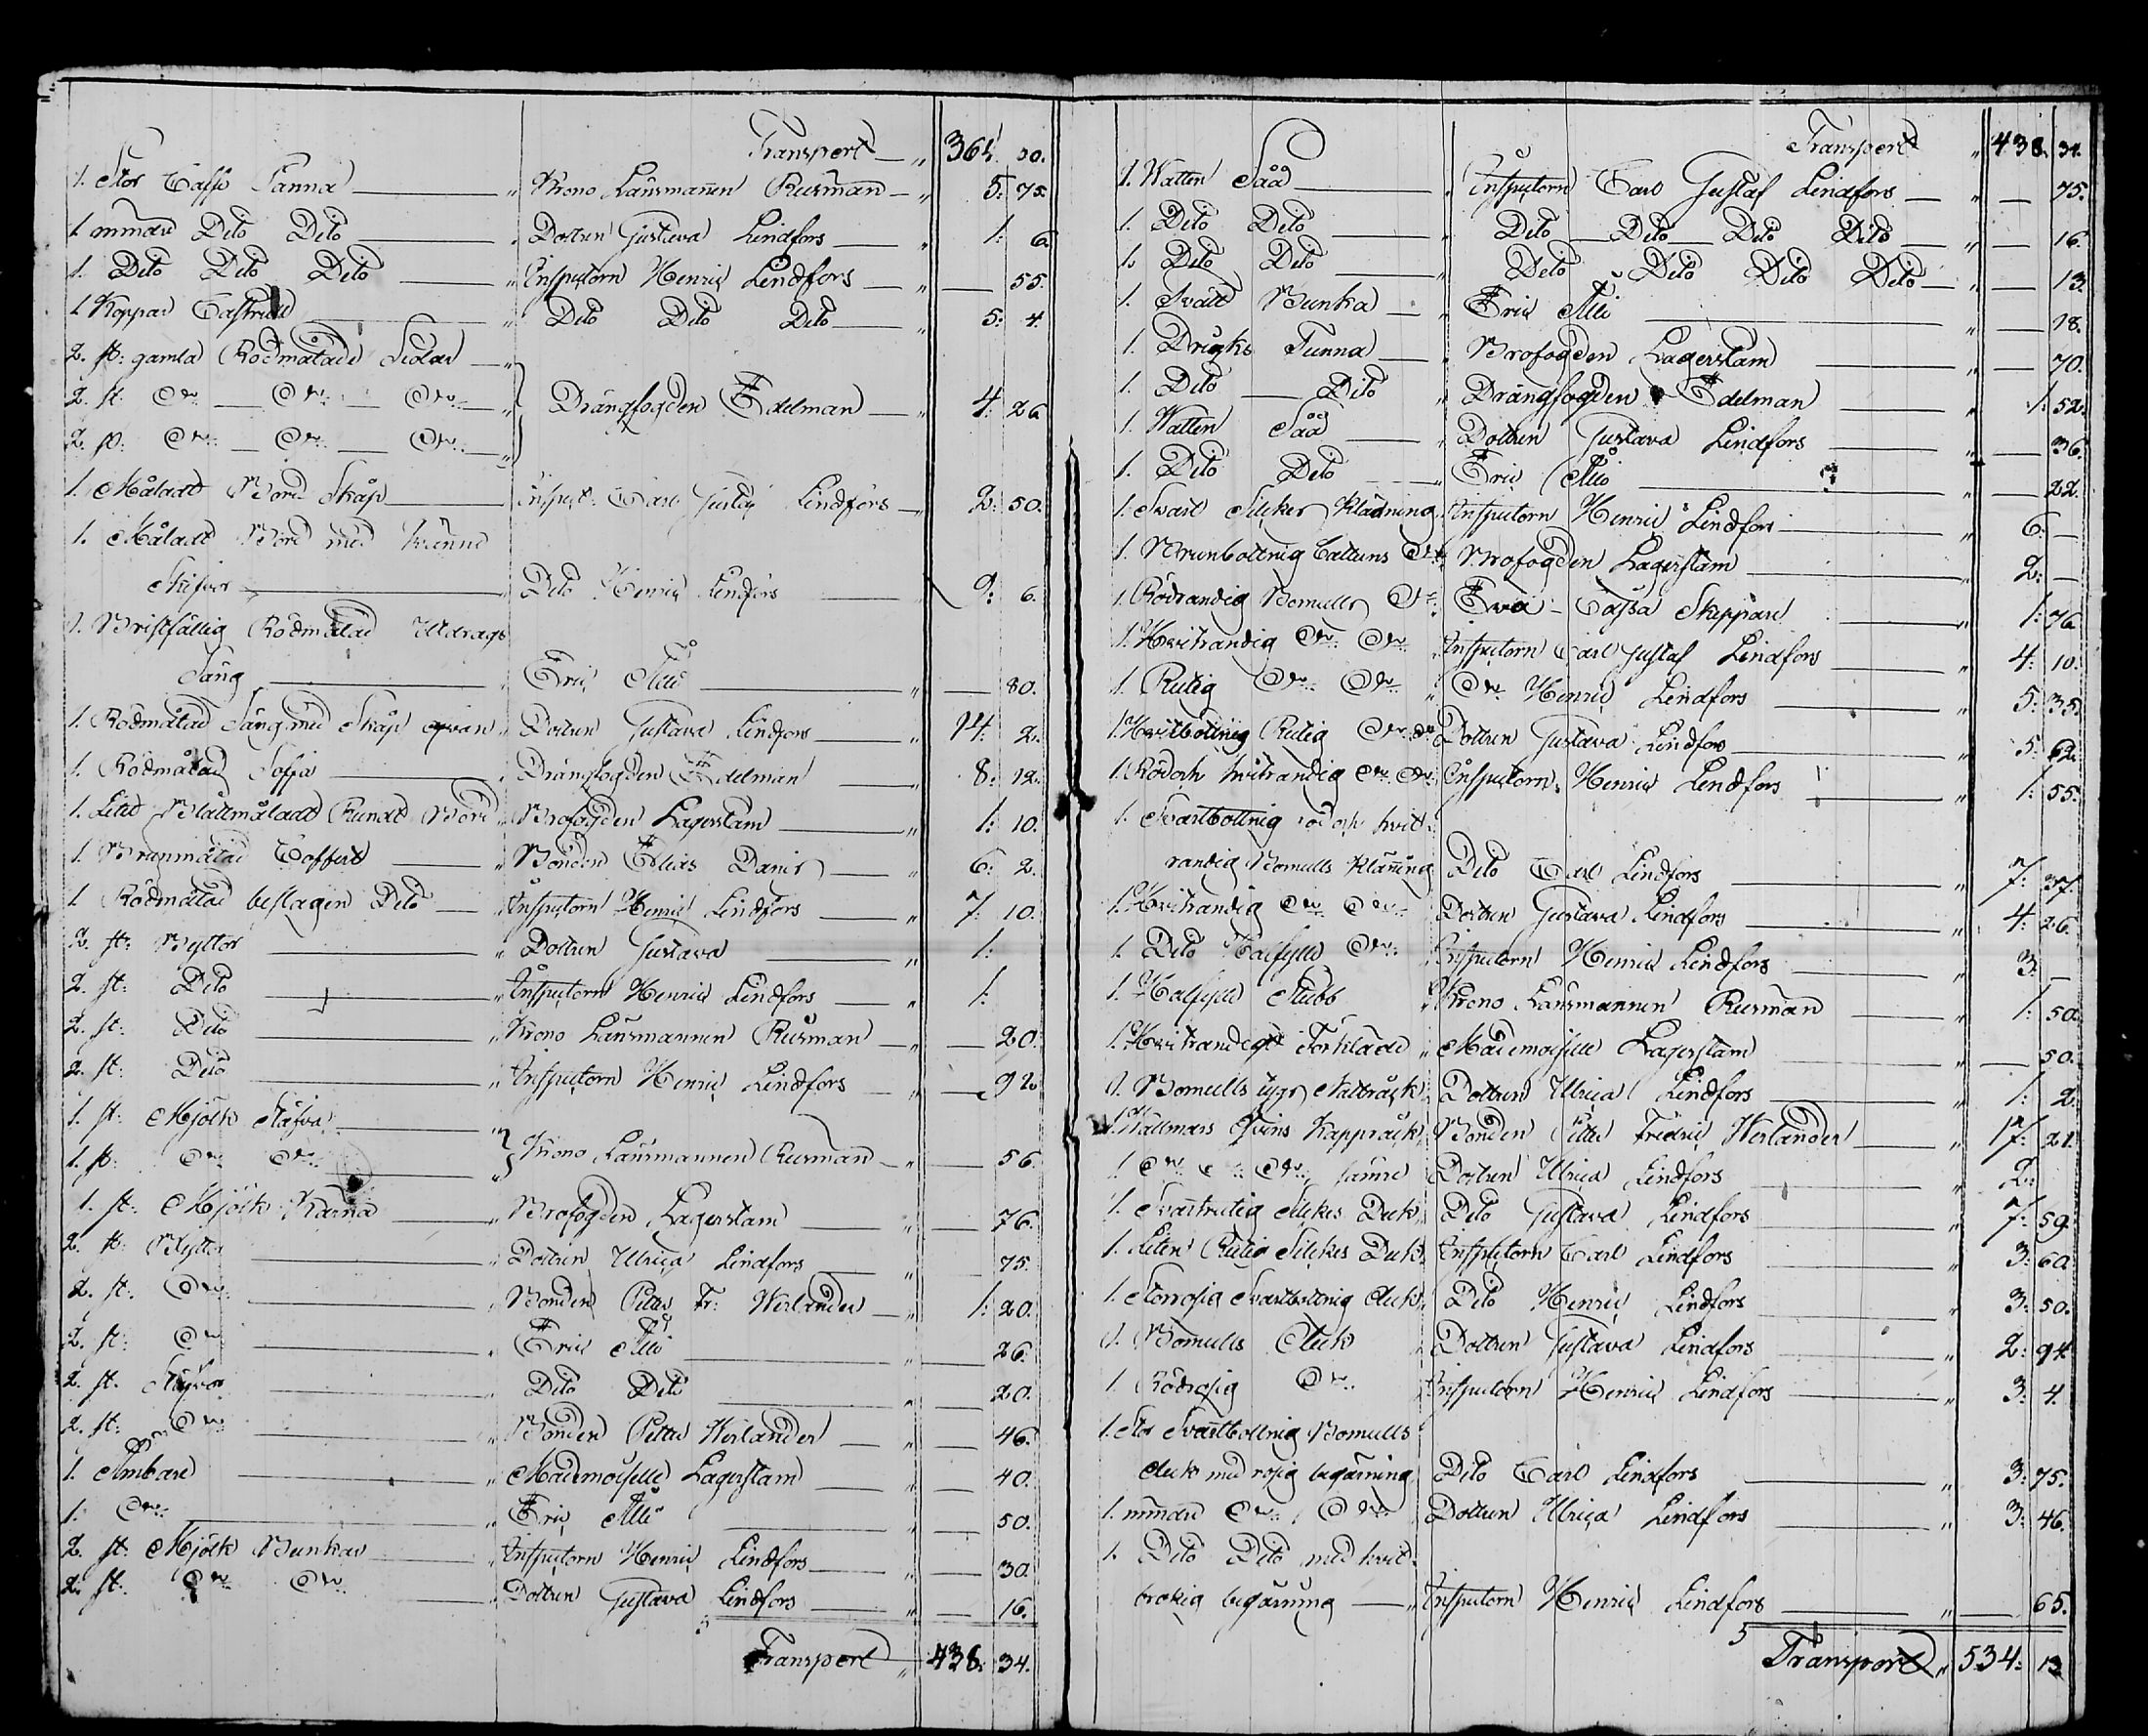 Transport " 364. 30.
1. Stor Caffe Panna " Krono Länsmannen Rusman " 5: 75.
1 mindre Dito Dito " Dottren Gustava Lindfors " 1: 6.
1. Dito Dito Dito " Inspectorn Henric Lindfors " — 55.
1 Koppar Castrull " Dito Dito Dito " 5: 4.
2. st: gamla Rödmålade Stolar "
2. st: Do Do Do " Drängfogden Edelman " 4: 26.
2. st: Do Do Do "
1. Måladt Bord Skåp " Inspect: Carl Gustaf Lindfors " 2: 50.
1. Måladt Bord med tvänne
Skifvor " Dito Henric Lindfors 9: 6.
1. Bristfällig Rödmålad Utdrags
Säng " Eric Alli " — 80.
1. Rödmålad Säng med Skåp ofvan " Dottren Gustava Lindfors " 14: 2.
1. Rödmålad Soffa " Drängfogden Edelman " 8: 12.
1. Litet Blåttmåladt Rundt Bord " Brofogden Lagerstam " 1: 10.
1. Brunmålad Coffert " Bonden Elias Danis " 6: 2.
1 Rödmålad beslagen Dito " Inspectorn Henric Lindfors " 7: 10.
2. st: Byttor " Dottren Gustava " 1:
2. st: Dito " Inspectorn Henric Lindfors " 1:
2. st: Dito " Krono Länsmannen Rusman " — 20.
2. st: Dito " Inspectorn Henric Lindfors " — 92.
1. st: Mjölk Stäfva "
1. st: Do Do " Krono Länsmannen Rusman " — 56.
1. st: Mjölk Kärna " Brofogden Lagerstam " — 76.
2. st: Bytter " Dottren Ulrica Lindfors " — 75.
2. st: Do " Bonden Petter Fr: Werlander " 1: 20.
2. st: Do " Eric Alli " — 26.
2. st. Stäfvor " Dito Dito " — 20.
2. st: Do " Bonden Petter Werlander " — 46.
1. Ämbare " Mademoiselle Lagerstam " — 40.
1. Do " Eric Alli " — 50.
2. st: Mjölk Bunkar " Inspectorn Henric Lindfors " — 30.
2. st: Do Do " Dottren Gustava Lindfors " — 16.
Transport " 438. 34.
Transport " 438. 34.
1. Watten Såå " Inspectorn Carl Gustaf Lindfors " — 75.
1. Dito Dito " Dito Dito Dito Dito " — 16.
1. Dito Dito " Dito Dito Dito Dito " — 13.
1. Svatt Bunka " Eric Alli " — 18.
1. Dricks Tunna " Brofogden Lagerstam " — 70.
1. Dito Dito " Drängfogden Edelman " 1: 52.
1. Watten Såå " Dottren Gustava Lindfors " — 36.
1. Dito Dito " Eric Alli " — 22.
1. Svart Silckes Klädning " Inspectorn Henric Lindfors " 6: —
1. Brunbottnig Cattuns Do " Brofogden Lagerstam " 2: —
1. Rödrandig Bomulls Do " Eva Cajsa Skeppare " 1: 76.
1. Hvitrandig Do Do " Inspectorn Carl Gustaf Lindfors " 4: 10.
1. Rutig Do Do " Do Henric Lindfors " 5: 35.
1. Hvitbottnig Rutig Do Do Dottren Gustava Lindfors " 5: 62.
1. Röd och hvitrandig Do Do Inspectorn Henric Lindfors " 1: 55.
1. Svartbottnig röd och hvit
randig Bomulls Klänning Dito Carl Lindfors " 7: 37.
1. Hvitrandig Do Do Dottren Gustava Lindfors " 4: 26.
1. Dito Halfsylle Do " Inspectorn Henric Lindfors " 3: —
1. Halfsylle Stubb " Krono Länsmannen Rusman 1: 50.
1. Hvitrandigt Förkläde " Mademoiselle Lagerstam " — 50.
1. Bomulls tygs Nattråck " Dottren Ulrica Lindfors " 1: 2.
1. Wallmars Qvins Kappråck " Bonden Petter Fredric Werlander " 17: 21.
1. Do Do Do sämre Dottren Ulrica Lindfors " 2:
1. Svartrutig Silckes Duk " Dito Gustava Lindfors " 7: 59.
1. Liten Rutig Silckes Duk " Inspectorn Carl Lindfors " 3: 60.
1. Storrosig Svartbottnig Duk " Dito Henric Lindfors " 3: 50.
1. Bomulls Duk " Dottren Gustava Lindfors " 2: 94.
1. Rödrosig Do " Inspectorn Henric Lindfors " 3: 4.
1. Stor Svartbottnig Bomulls
duk med rosig begärning Dito Carl Lindfors " 3: 75.
1. mindre Do Do Dottren Ulrica Lindfors " 3: 46.
1. Dito Dito med hvit
brokig begärning " Inspectorn Henric Lindfors " — 65.
Transport " 534: 13.